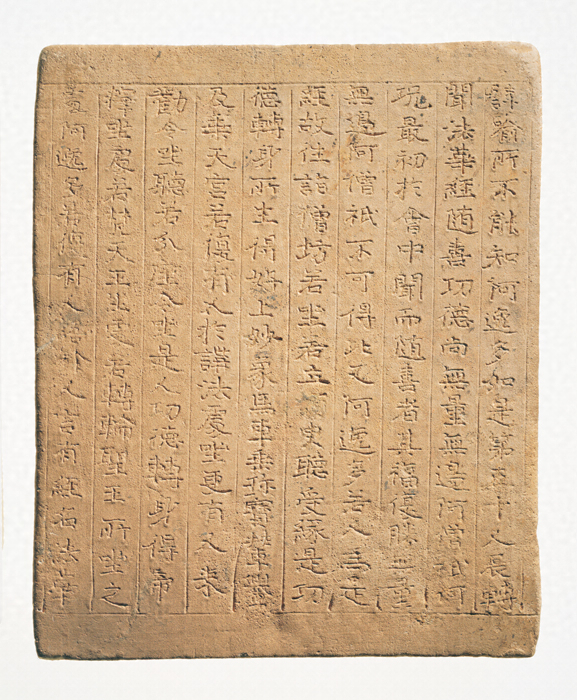 譬喻所不能知阿逸多如是第五十人展轉
聞法華經随喜功德尚無量無邊阿僧祇何
况最初於會中聞而随喜者其福復勝無量
無邊阿僧祇不可得比又阿逸多若人為是
經故往詣僧坊若坐若立須臾聽受緣是功
德轉身所生得好上妙象馬車乘珍寶輦轝
及乘天宮若復有人於講法處坐更有人來
勸令坐聽若分座令坐是人功德轉身得帝
釋坐處若梵天王坐處若轉輪聖王所坐之
處阿逸多若復有人語餘人言有經名法華